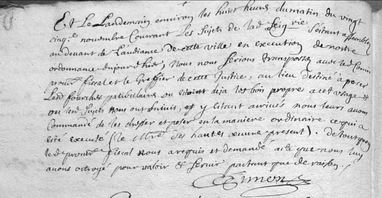 Et le Landemain environ les huit heures du matin du vingt
cinq.e novembre Courant les Sujets de lad. Seig.rie s'étant assemblés
audevant de Laudiance de cette ville en execution de nostre
ordonnance dujourdhier, Nous nous serions transportés avec led.
fiscal et le Greffier de cette Justice, au lieu destiné a poser
Lesd. fourches patibulaires ou étoient deja les bois propres a cet usage et
ou lesd. Sujets nous ont suivis, et y étant arrivés nous leur avons
Commandé de les dresser et poser en la maniere ordinaire ce qui a
esté executé (le M.tre des hautes œuvres present). De tout quoy
led. procur. fiscal nous a requis et demandé acte que nous luy
avons octroyé pour valoir et servir partout que de raison.